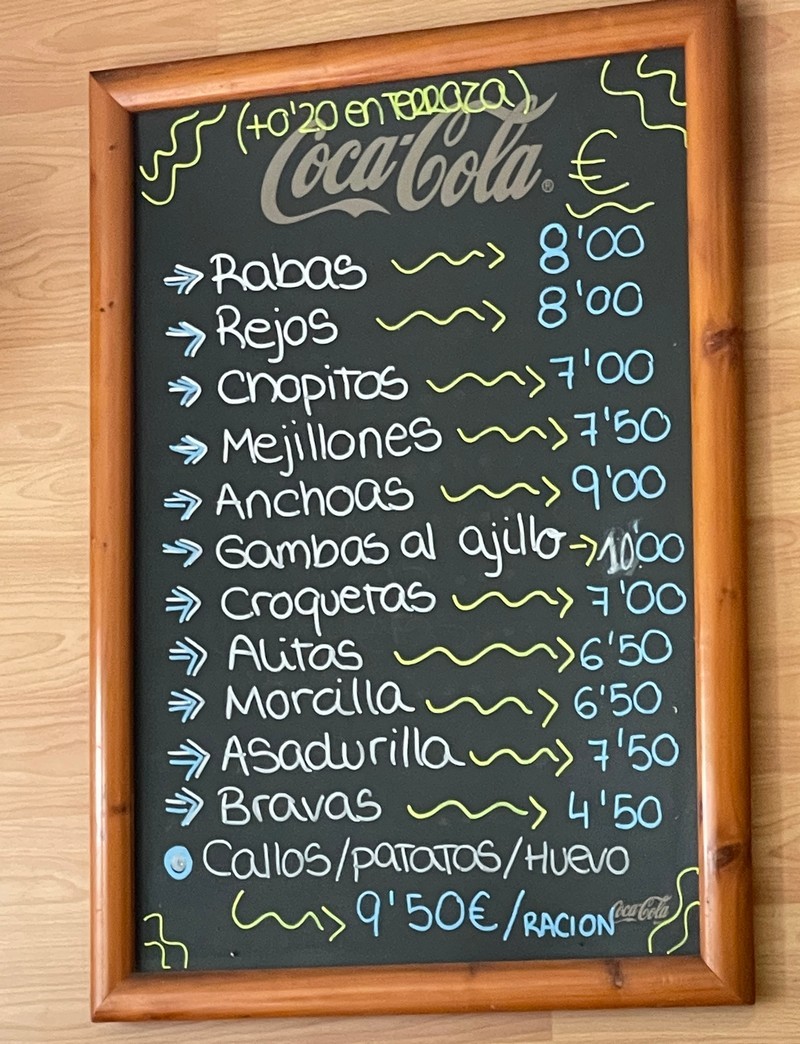 (+0'20 en Terraza)
Coca-Cola®
€
Rabas 8'00
Rejos 8'00
Chopitos 7'00
Mejillones 7'50
Anchoas 9'00
Gambas al ajillo 10'00
Croquetas 7'00
Alitas 6'50
Morcilla 6'50
Asadurilla 7'50
Bravas 4'50
Callos/patatas/Huevo
9'50€/RACION
Coca-Cola